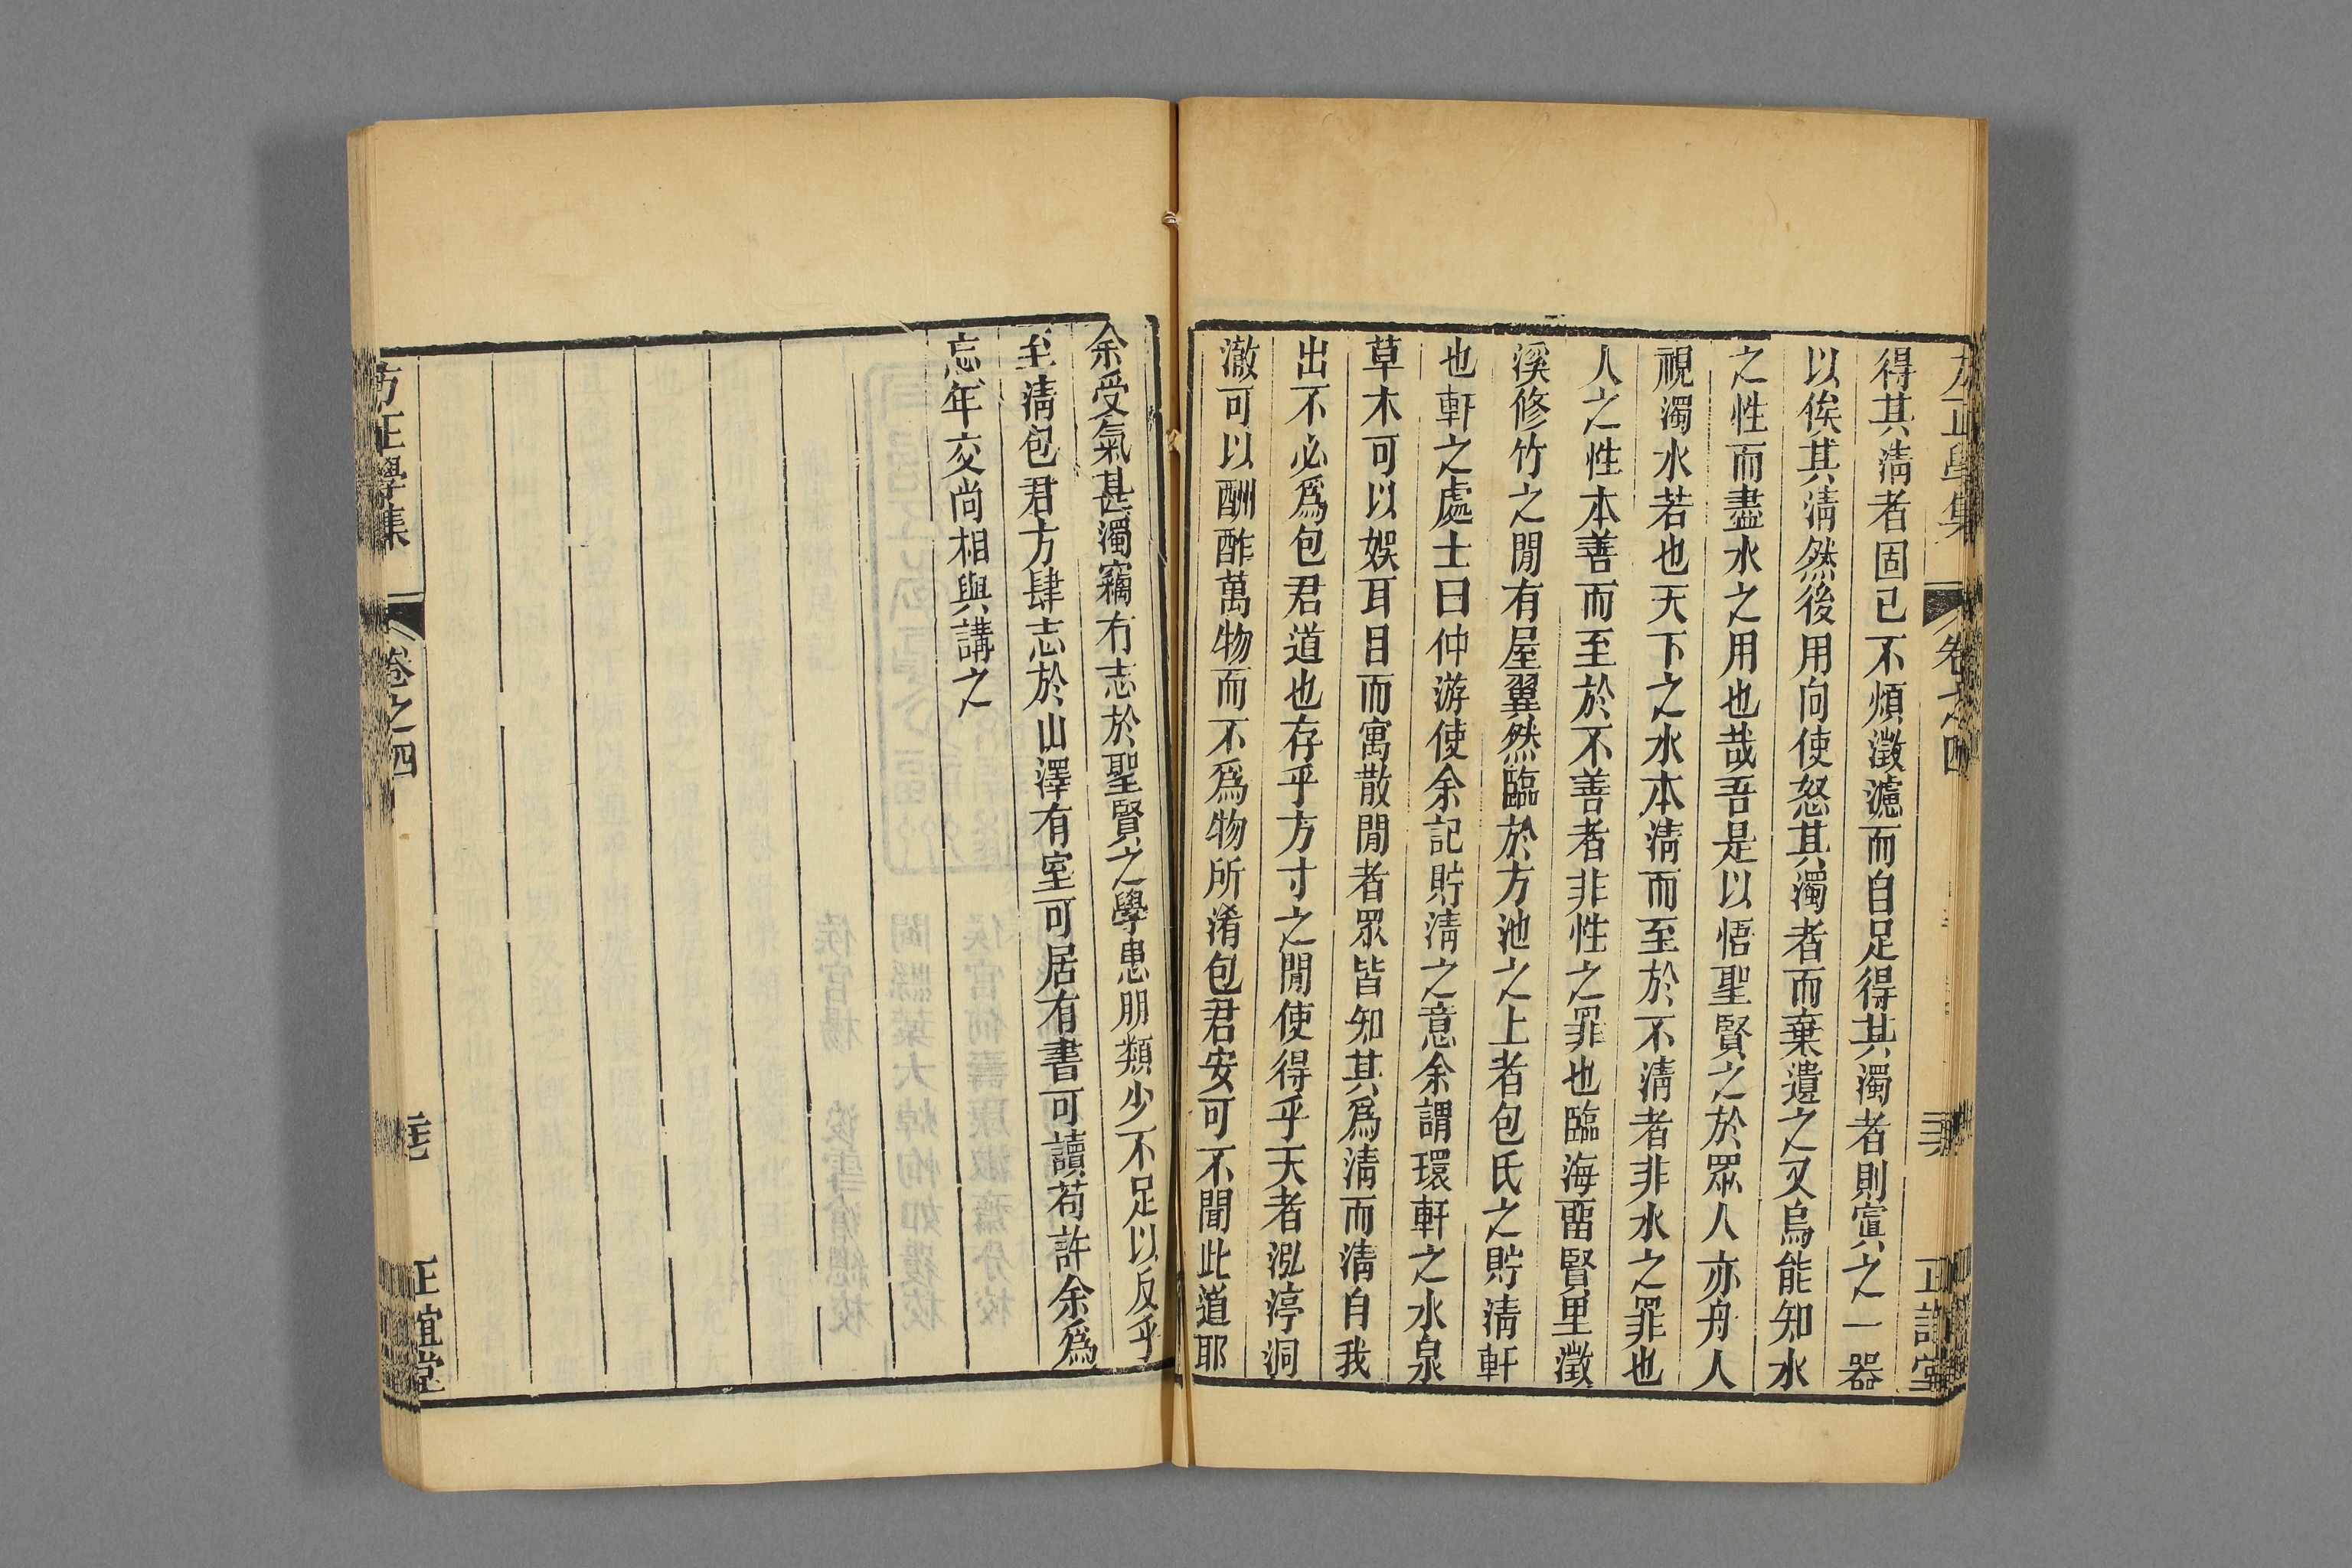 得其淸者固已不煩澂濾而自足得其濁者則寘之一器
以俟其淸然後用向使怒其濁者而棄遺之又烏能知水
之性而盡水之用也哉吾是以悟聖賢之於眾人亦舟人
視濁水若也天下之水本淸而至於不淸者非水之罪也
人之性本善而至於不善者非性之罪也臨海畱賢里澂
溪修竹之閒有屋翼然臨於方池之上者包氏之貯淸軒
也軒之處士曰仲游使余記貯淸之意余謂環軒之水泉
草木可以娛耳目而寓散閒者眾皆知其爲淸而淸自我
出不必爲包君道也存乎方寸之閒使得乎天者泓渟洞
澈可以酬酢萬物而不爲物所淆包君安可不聞此道耶
余受氣甚濁竊有志於聖賢之學患朋類少不足以反乎
至淸包君方肆志於山澤有室可居有書可讀苟許余爲
忘年交尚相與講之
方正學集
卷之四
正誼堂